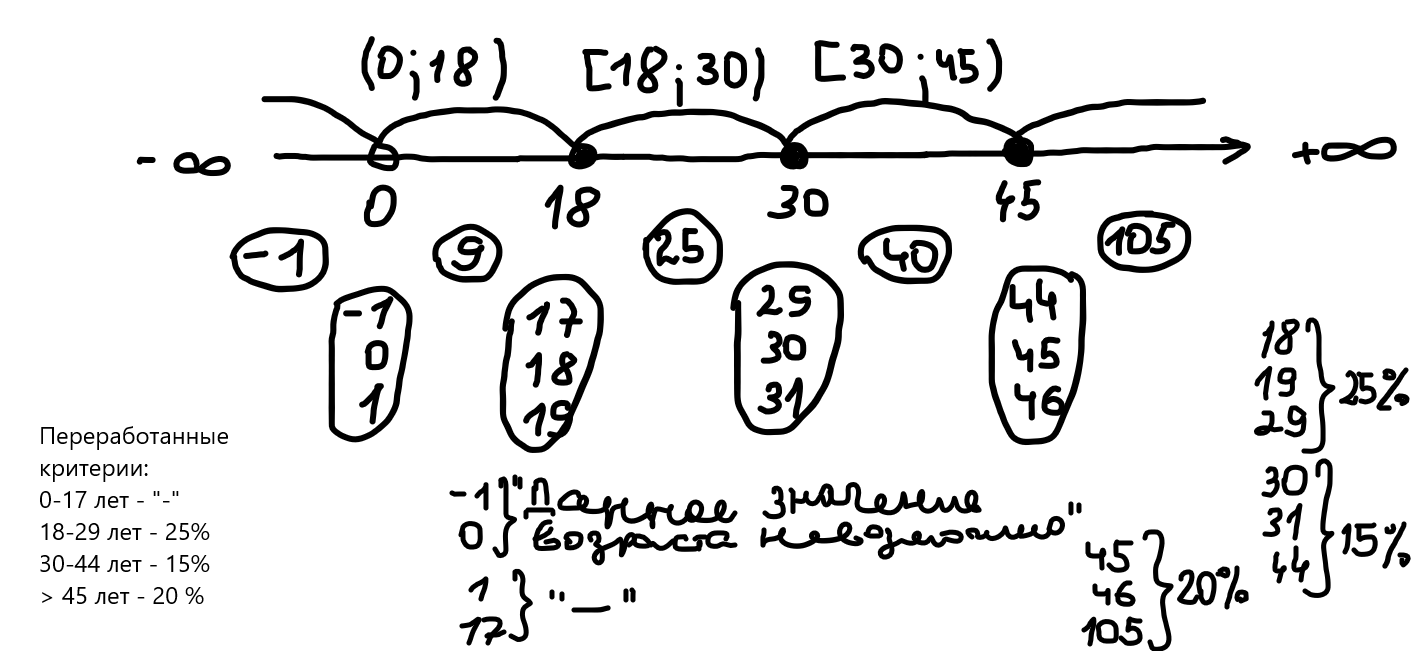 (0;18) [18;30) [30;45)
- ∞ +∞
0 18 30 45
-1 9 25 40 105
-1 17 29 44
0 18 30 45
1 19 31 46
18
19 25%
29
30
31 15%
44
Переработанные
критерии:
0-17 лет - "-"
18-29 лет - 25%
30-44 лет - 15%
> 45 лет - 20 %
-1 "Данное значение
0 возраста невозможно"
1 "—"
17
45
46 20%
105